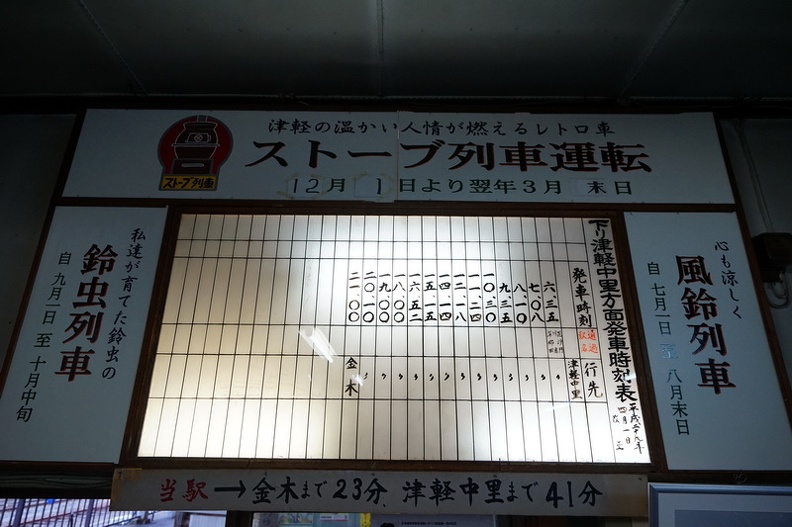 津軽の温かい人情が燃えるレトロ車
ストーブ列車運転
12月1日より翌年3月末日
ストーブ列車
心も涼しく
風鈴列車
自七月一日至八月末日
下り津軽中里方面発車時刻表
平成二十九年
四月一日
発車時刻
通過
駅名
行先
六.三五
津軽中里
七.〇八
〃
八.一〇
〃
九.三五
〃
一〇.三〇
〃
一一.二四
〃
一二.一八
〃
一四.一四
〃
一五.一五
〃
一六.五二
〃
一八.〇〇
〃
一九.〇〇
〃
二〇.一〇
〃
二一.〇〇
金木
私達が育てた鈴虫の
鈴虫列車
自九月一日至十月中旬
当駅→金木まで23分、津軽中里まで41分